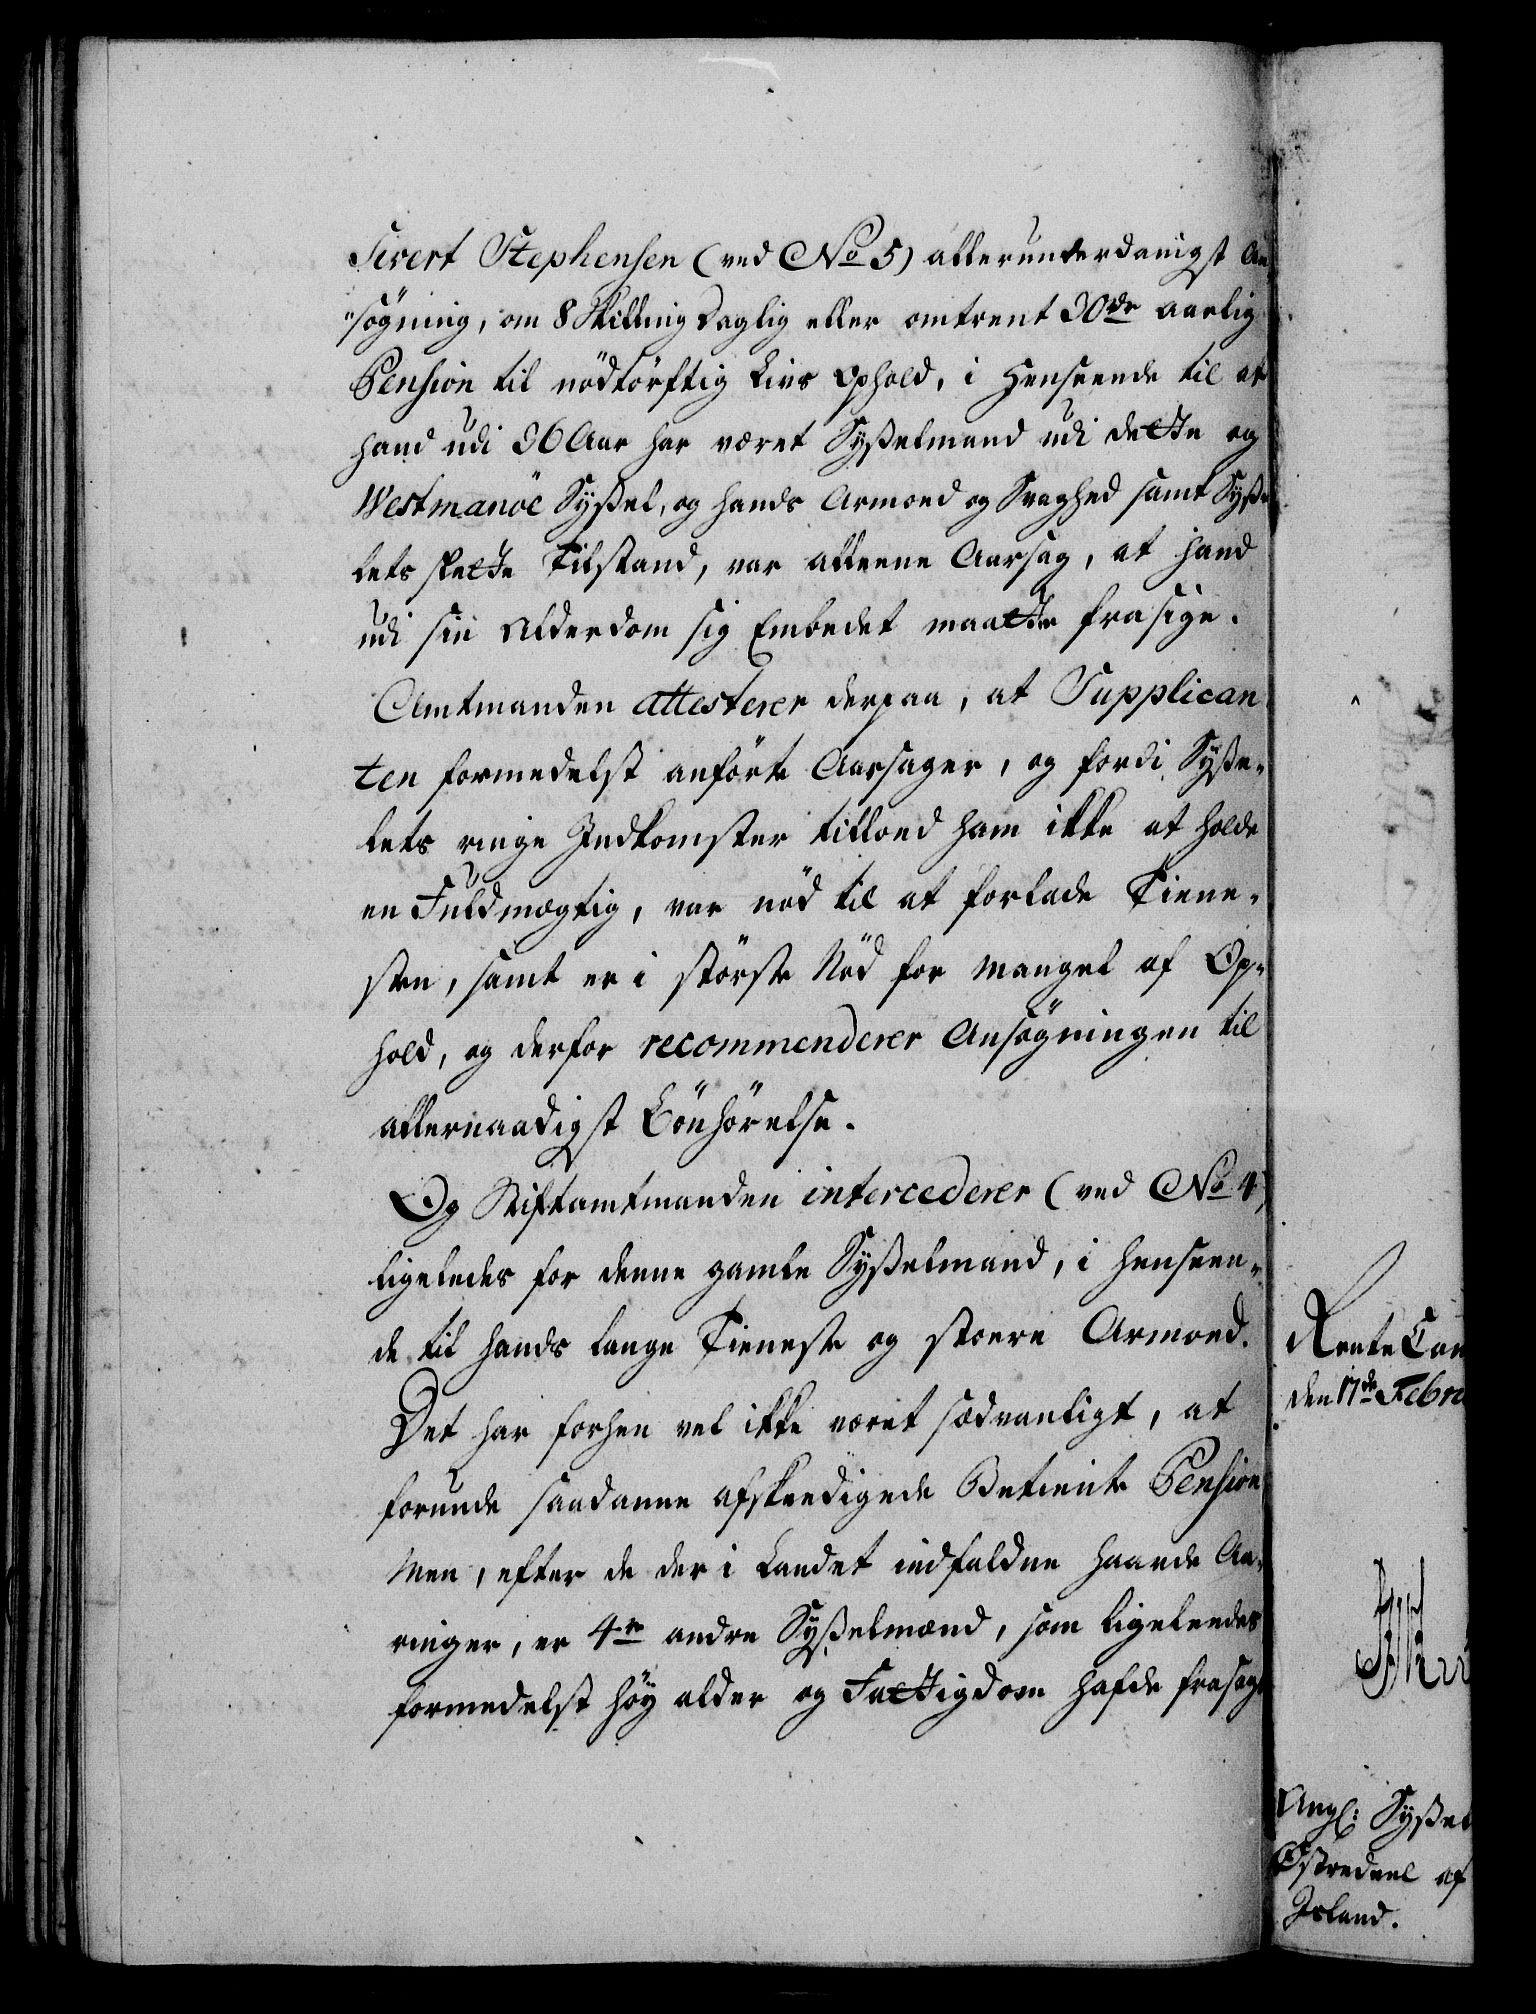 Sivert Stephensen (ved No 5) allerunderdanigst An-
søgning, om 8 Skilling Daglig eller omtrent 30rdr aarlig
Pension til nødtörftig Livs Ophold, i Henseende til at
hand udi 36 Aar har været Sysselmand udi dette og
Westmanöe Syssel, og hands Armoed og Svaghed samt Sysse
lets slette Tilstand, var alleene Aarsag, at hand
udi sin Alderdom sig Embedet maatte frasige.
Amtmanden attesterer derpaa, at Supplican
ten formedelst anførte Aarsager, og fordi Sysse-
lets ringe Indkomster tilloed ham ikke at holde
en Fuldmægtig, var nød til at forlade Tiene-
sten, samt er i störste Nød for Mangel af Op-
hold, og derfor recommenderer Ansøgningen til
allernaadigst Bönhörelse.
Og Stiftamtmanden intercederer (ved No 4)
ligeledes for denne gamle Sysselmand, i Henseen-
de til hands lange Tieneste og stoere Armoed.
Det har forhen vel ikke været sædvanligt, at
forunde saadanne afskeedigede Betiente Pension
Men, efter de der i Landet indfaldne haarde Aa-
ringer, er 4re andre Sysselmænd, som ligeleedes
formedelst höy alder og Fattigdom hafde frasagt
Rente Cam
den 17de Febru
Angl: Syssel
Østredeel af
Island.